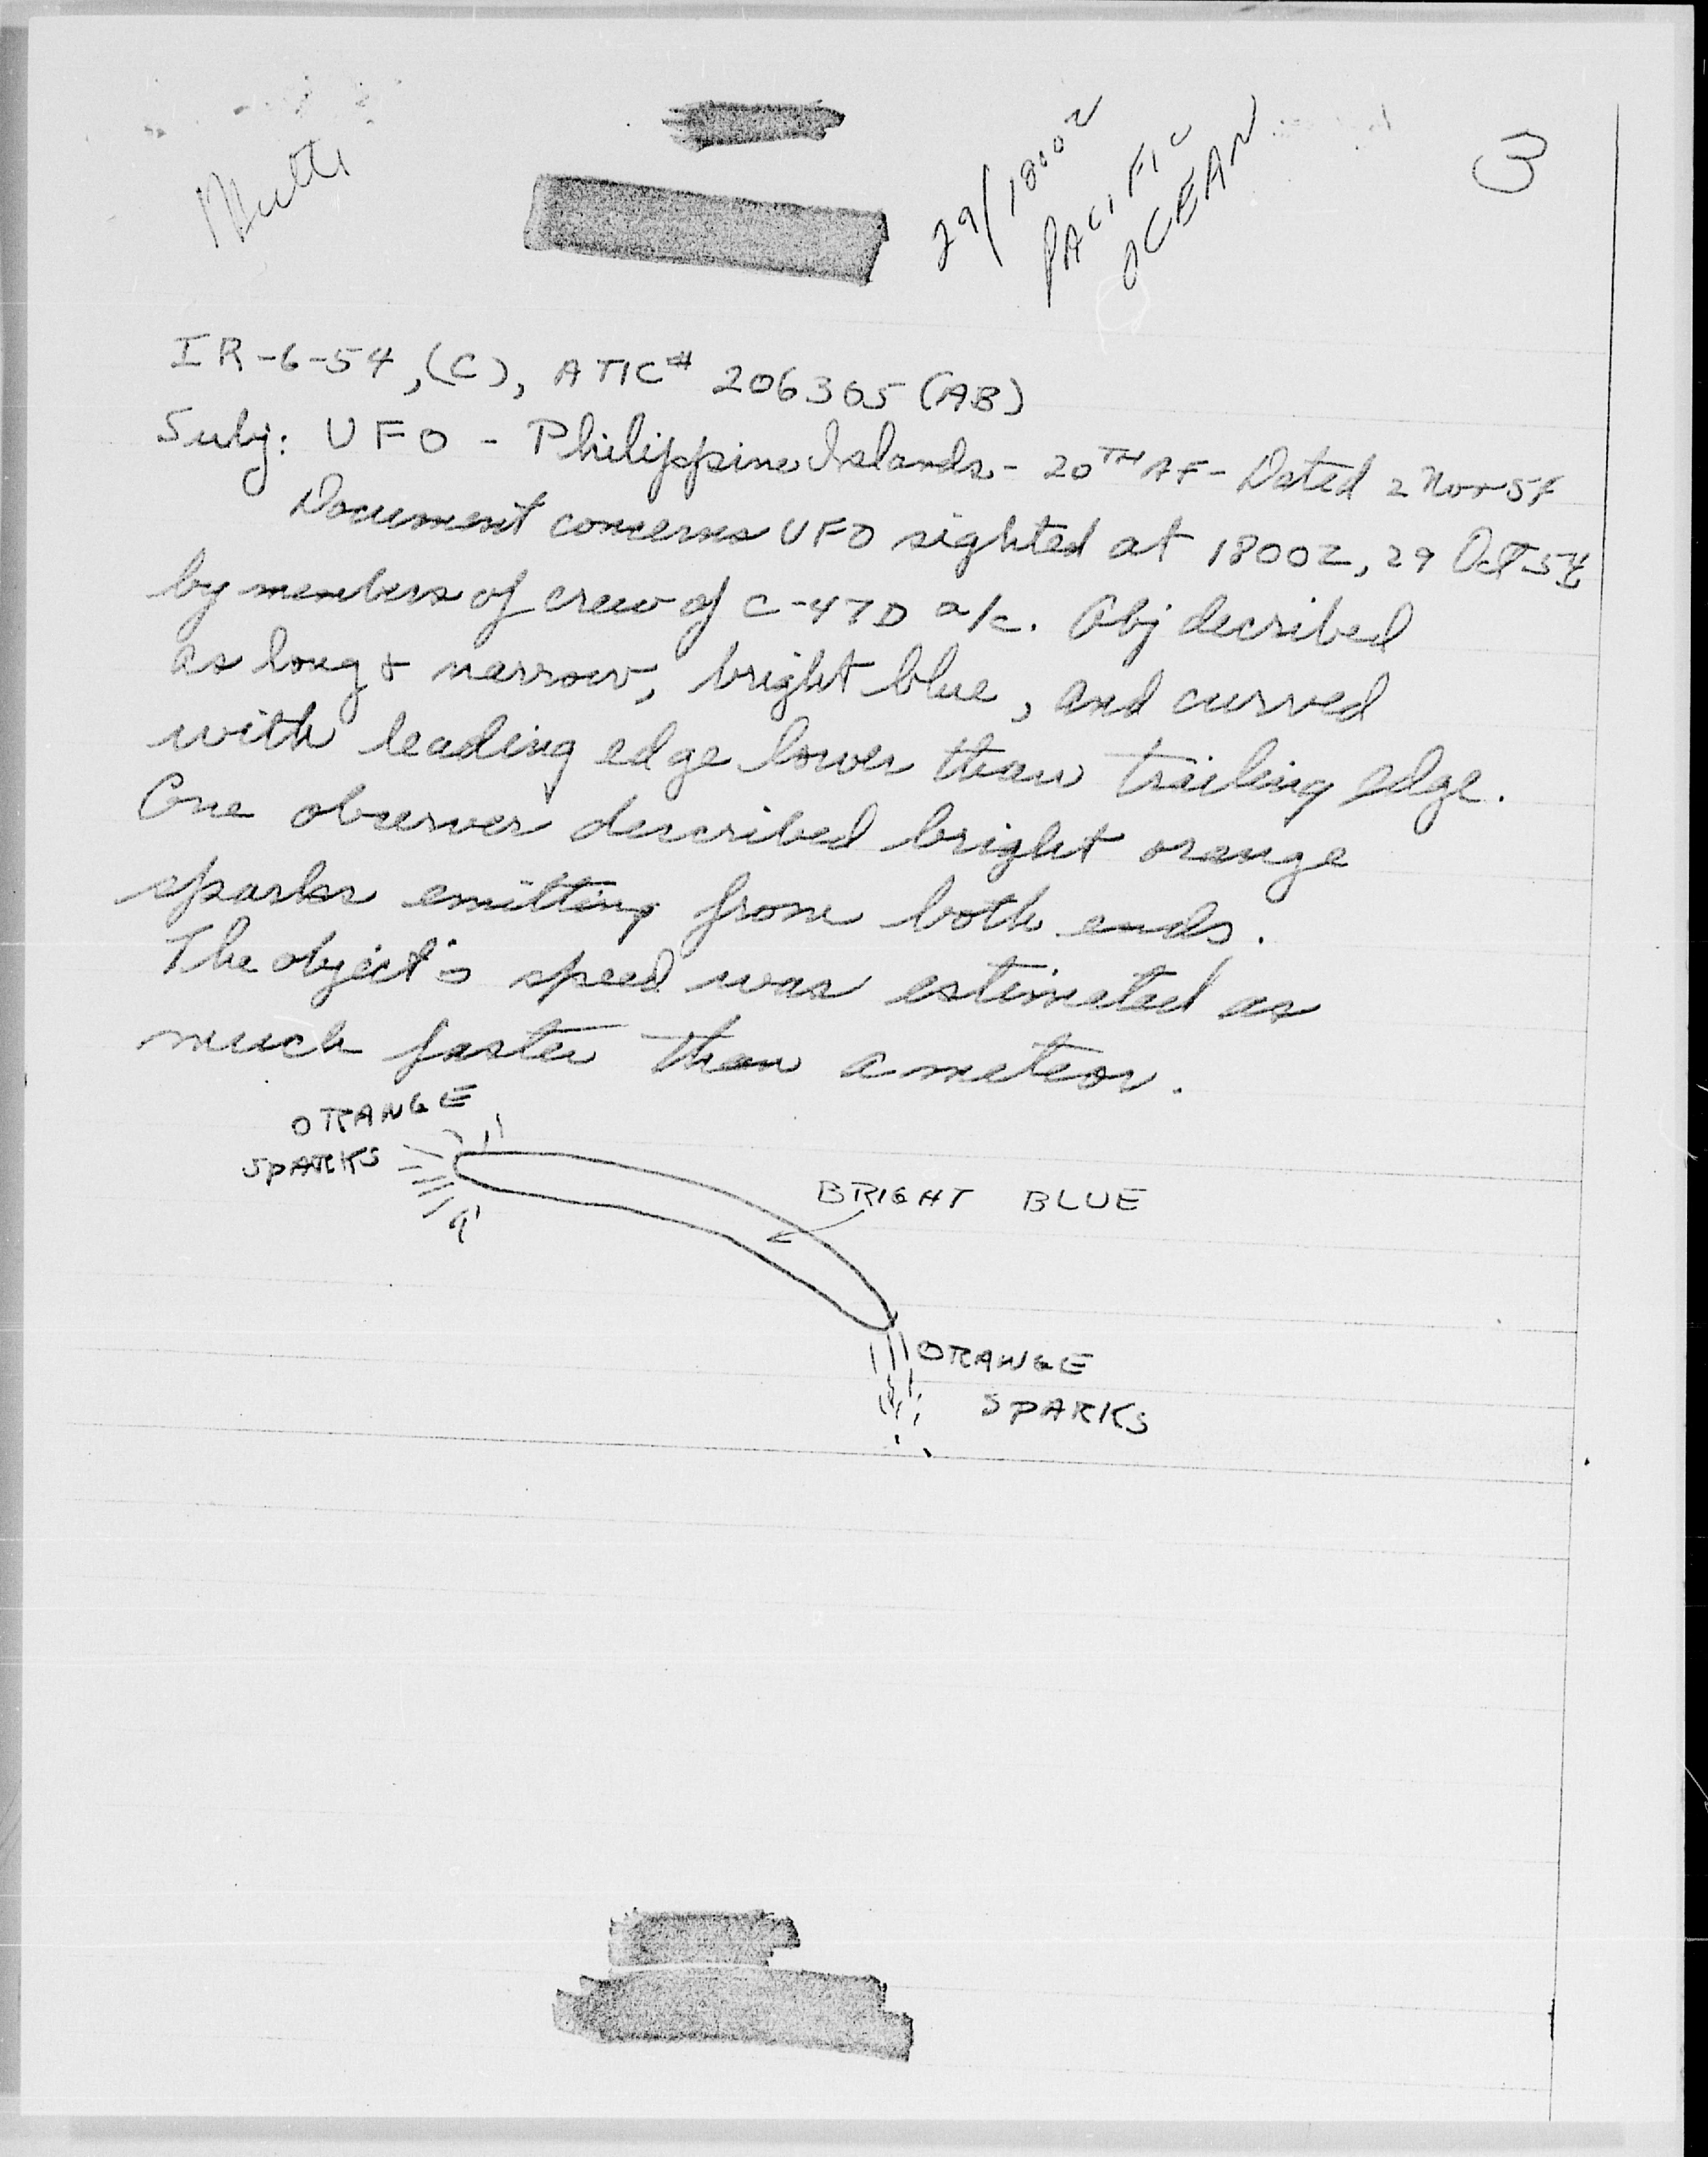 29/1800Z
PACIFIC
OCEAN
3
IR-6-54, (C), ATIC# 206365 (AB)
Subj: UFO - Philippine Islands - 20TH AF - Dated 2 Nov 54
Document concerns UFO sighted at 1800Z, 29 Oct 54
by members of crew of C-47D a/c. Obj decribed
as long & narrow, bright blue, and curved
with leading edge lower than trailing edge.
One observer described bright orange
sparks emitting from both ends.
The object's speed was estimated as
much faster than a meteor.
ORANGE
SPARKS
BRIGHT BLUE
ORANGE
SPARKS